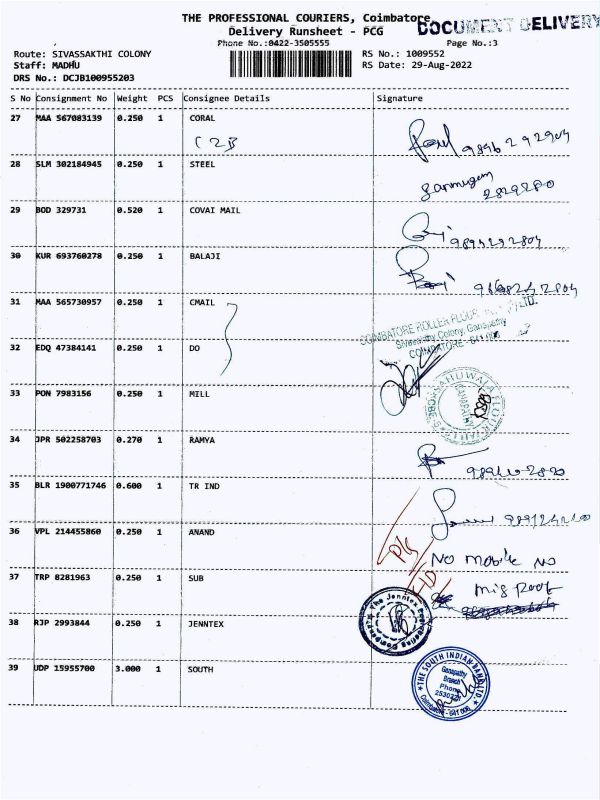 THE PROFESSIONAL COURIERS, Coimbatore
DOCUMENT DELIVERY
Delivery Runsheet - PCG
Phone No.:0422-3505555
Page No.:3
Route: SIVASSAKTHI COLONY
RS No.: 1009552
Staff: MADHU
RS Date: 29-Aug-2022
DRS No.: DCJB100955203
S No Consignment No Weight PCS Consignee Details Signature
27 MAA 567083139 0.250 1 CORAL
28 SLM 302184945 0.250 1 STEEL
29 BOD 329731 0.520 1 COVAI MAIL
30 KUR 693760278 0.250 1 BALAJI
31 MAA 565730957 0.250 1 CMAIL
COIMBATORE ROLLER FLOUR
Sivasakthy Colony, Ganapathy
COIMBATORE - 641 006
32 EDQ 47384141 0.250 1 DO
33 PON 7983156 0.250 1 MILL
34 JPR 502258703 0.270 1 RAMYA
35 BLR 1900771746 0.600 1 TR IND
36 VPL 214455860 0.250 1 ANAND
No mobile no
37 TRP 8281963 0.250 1 SUB
38 RJP 2993844 0.250 1 JENNTEX
The Jenntex Engineering Company
39 UDP 15955700 3.000 1 SOUTH
THE SOUTH INDIAN BANK LTD.
Ganapathy
Branch
Phone
Coimbatore - 641 006